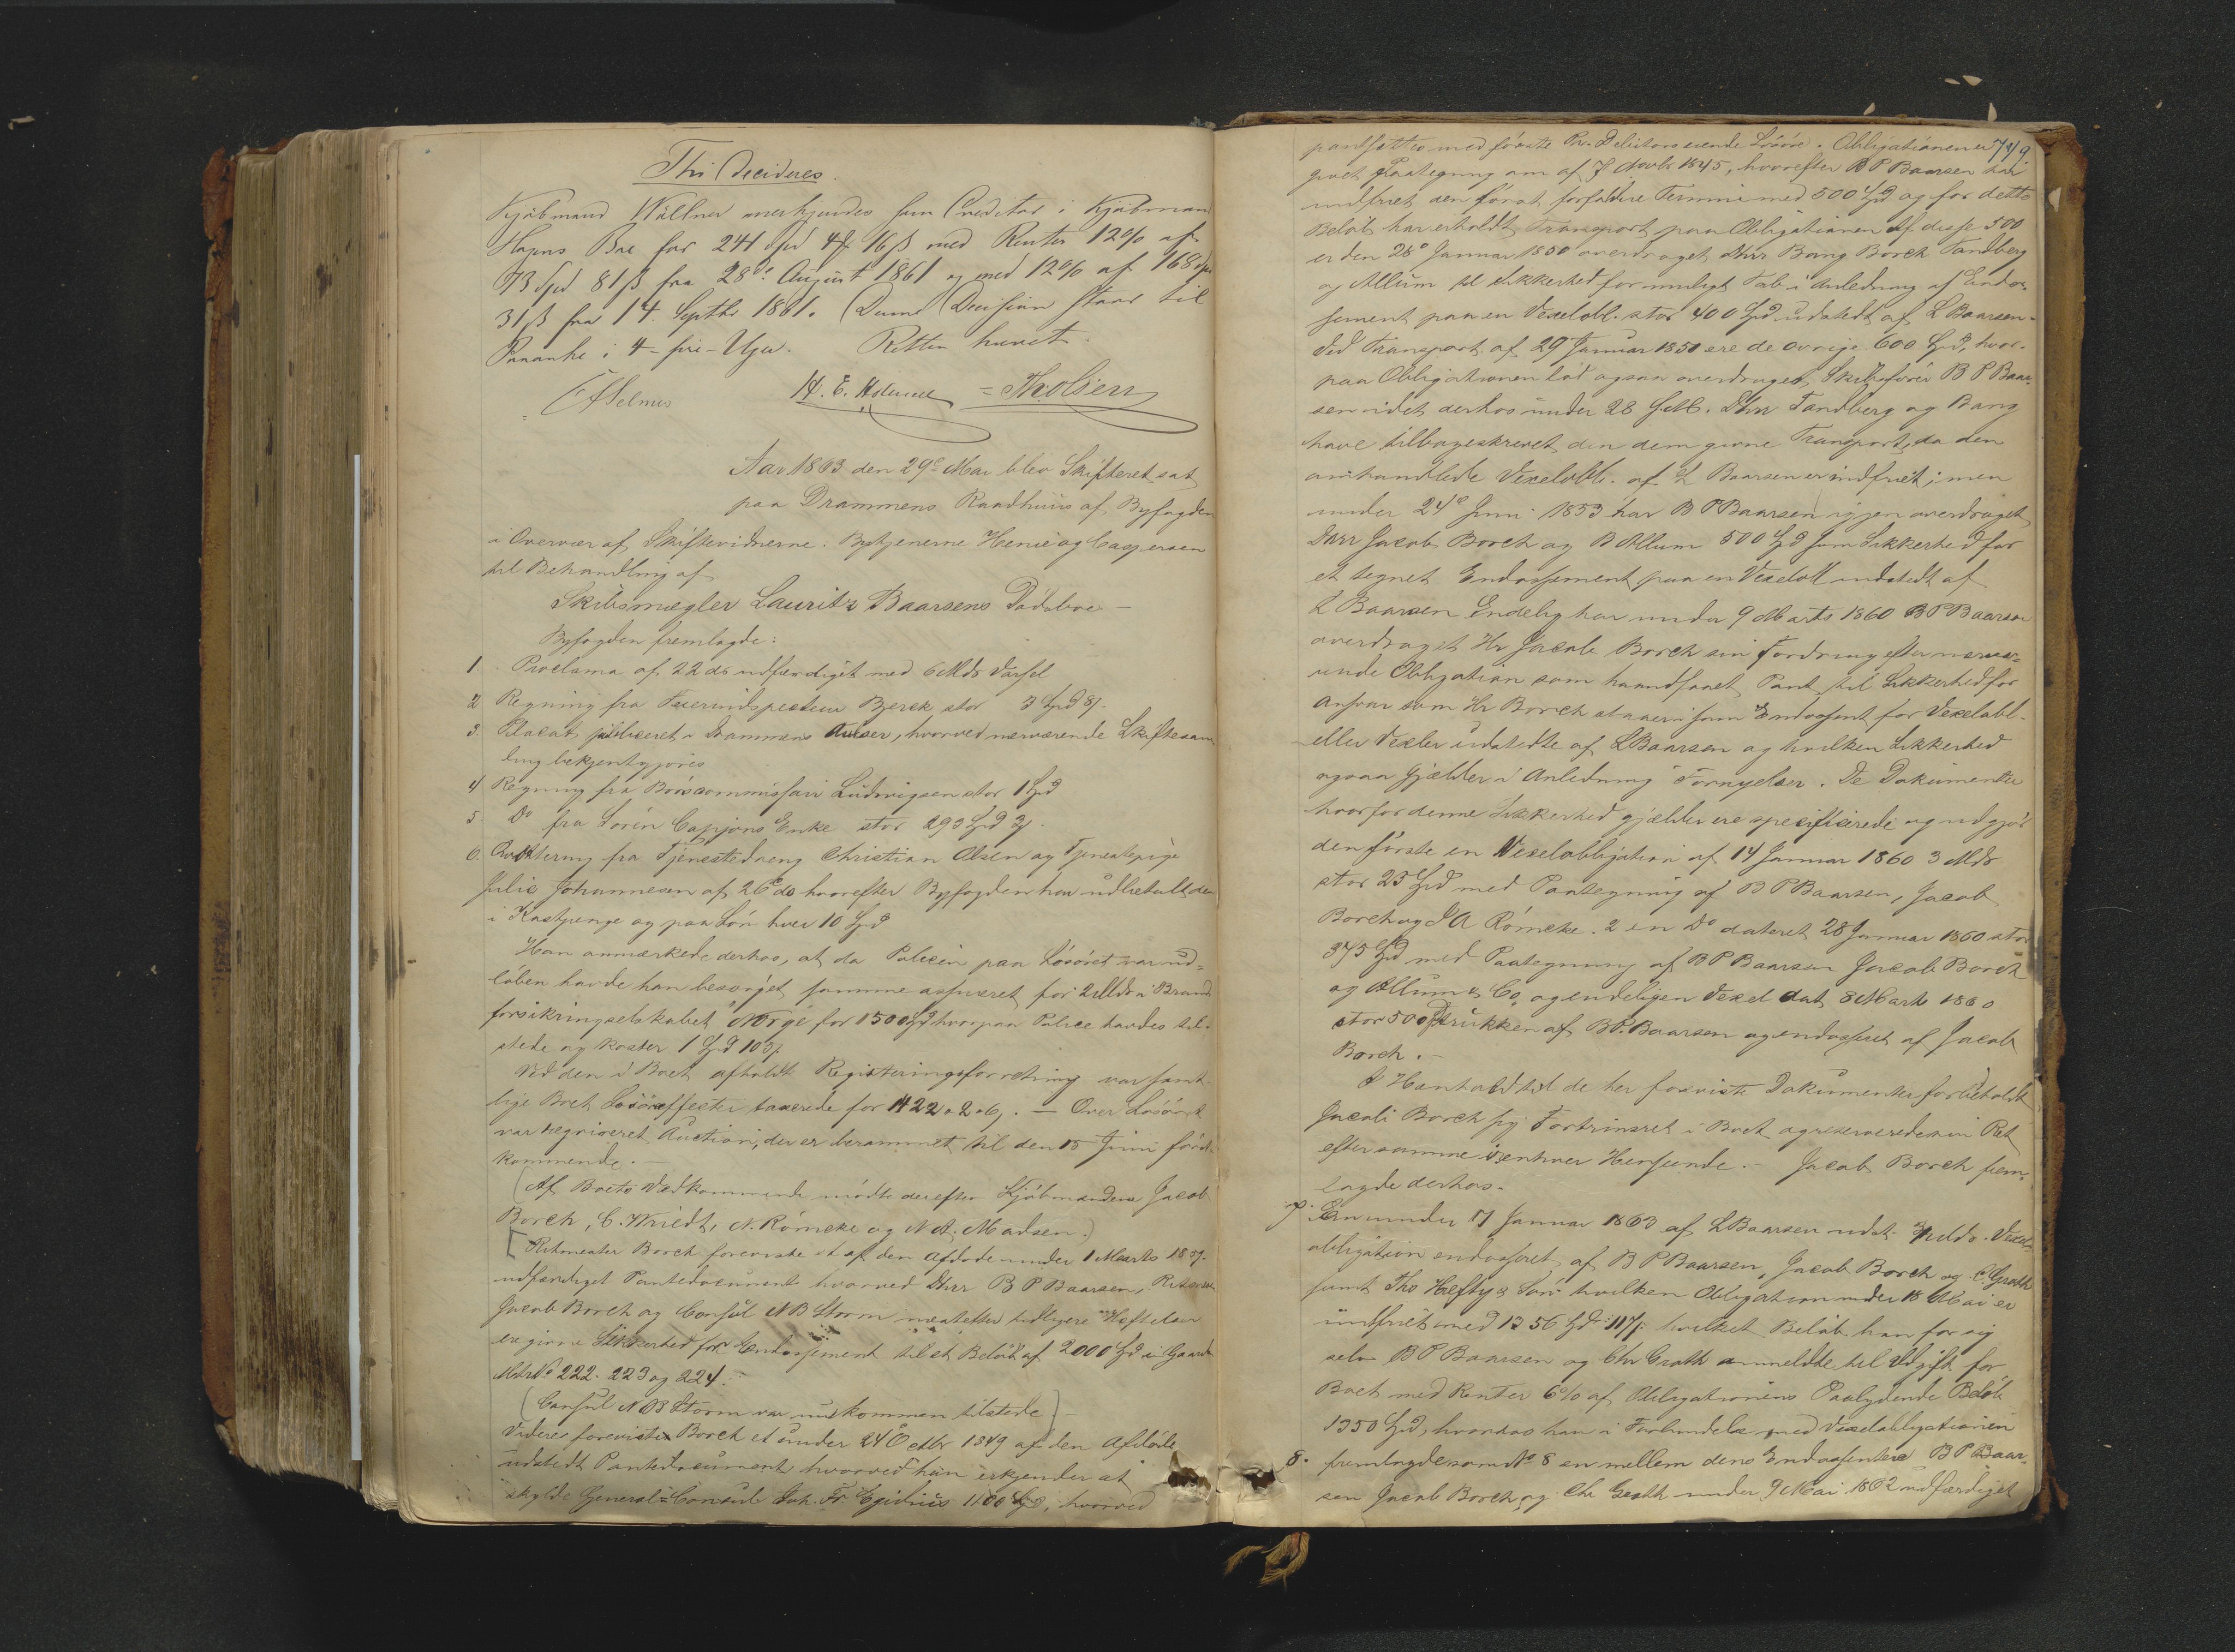 Thi Decideres.
Kjøbmand Wøllner anerkjendes som Creditor i Kjøbmand
Hagens Boe for 241 Spd 4 16 ß med Renter 12% af
73 Spd 81 ß fra 28de August 1861 og med 12% af 168 Spd
31 ß fra 14 Septbr 1861. Denne Decision staar til
Paaanke i 4-fire-Uger. Retten hævet.
H. E. Tholsen
Aar 1863 den 29e Mai blev Skifteret sat
paa Drammens Raadhuus af Byfogden
i Overvær af Skiftevidnerne: Bytjenerne Henie og Caspersen
til Behandling af
Skibsmægler Lauritz Baarsens Dødsboe –
Byfogden fremlagde:
1 Proclama af 22 ds udfærdiget med 6 Mdrs Varsel
2 Regning fra Bjerck stor 3 Spd
3. Placat publiceret i Drammens Aviser, hvorved nærværende Skiftesam-
ling bekjentgjøres
4 Regning fra Ludvigsen stor 1 Spd
5. Do fra Sören Enke stor 293 Spd
6. Qvittering fra Tjenestedreng Christian Olsen og Tjenestepige
Julie Johannesen af 26e ds hvorefter Byfogden har udbetalt dem
i Kostpenge og paa Løn hver 10 Spd
Han anmærkede derhos, at da Policen paa Løsøret var ud-
løben havde han besørget samme assureret for 2 Mdr i Brand-
forsikringselskabet Norge for 1500 Spd hvorpaa Police havdes til-
stede og koster 1 Spd
Ved den i Boet afholdt Registreringsforretning var samt-
lige Boets Løsøreffecter taxerede for 1422. 2. 6. – Over Løsøret
var reqvireret Auction, der er berammet til den 15 Juni først-
kommende. –
(Af Boets Vedkommende mødte derefter Kjøbmændene Jacob
Borch, C. Kniedt, N. Römcke og N A. Madsen.)
[Ritmester Borch foreviste et af den Afdøde under 1 Marts
udfærdiget Pantedocument hvorved Dhrr B P Baarsen,
Jacob Borch og Consul N B Storm næstefter tidligere Heftelser
er givne Sikkerhed for Endossement til et Beløb af 2000 Spd i Gaarden
Mtr No 222. 223 og 224.
(Consul N B Storm var nu kommen tilstede)
Videre foreviste Borch et under 24 Octbr 1849 af den Afdøde
udstedt Pantedocument hvorved han erkjender at
skylde General-Consul Joh. Fr. Egidius 1100 Spd, hvorved
749.
pantsattes med første Pr. Debitors eiende Løsøre. Obligationen er
givet Paategning om af 7 Novbr 1845, hvorefter B P Baarsen har
indfriet den først forfaldne Termin med 500 Spd og for dette
Beløb har erholdt Transport paa Obligationen. Af disse 500
er den 28e Januar 1850 overdraget Dhrr Bang Borch Tandberg
og Allum til Sikkerhed for muligt Tab i Anledning af Endos-
sement paa en Vexelobl. stor 400 Spd udstedt af L Baarsen.
Ved Transport af 29 Januar 1850 ere de øvrige 600 Spd, hvor-
paa Obligationen lød ogsaa overdraget Skibsfører B P Baar-
sen idet derhos under 28 s. M. Dhrr Tandberg og Bang
have tilbageskrevet den dem givne Transport, da den
omhandlede Vexelobl. af L Baarsen er indfriet; men
under 24e Juni 1853 har B P Baarsen igjen overdraget
Dhrr Jacob Borch og B Allum 500 Spd som Sikkerhed for
et tegnet Endossement paa en Vexelobl udstedt af
L Baarsen. Endelig har under 9 Marts 1860 B P Baarsen
overdraget Hr Jacob Borch sin Fordring efter nærvæ-
rende Obligation som haandfaaet Pant til Sikkerhed for
Ansvar som Hr Borch staaer i som Endossent for Vexelobl.
eller Vexler udstedte af L Baarsen og hvilken Sikkerhed
ogsaa gjælder i Anledning Fornyelser. De Dokumenter
hvorfor denne Sikkerhed gjælder ere specificerede og udgjør
den første en Vexelobligation af 14 Januar 1860 3 Mdr
stor 25 Spd med Paategning af B P Baarsen, Jacob
Borch og A Römcke. 2 en Do dateret 28 Januar 1860 stor
375 Spd med Paategning af B P Baarsen Jacob Borch
og Allum & Co. og endeligen Vexel dat. 8 Marts 1860
stor 500 trukken af B P. Baarsen og endosseret af Jacob
Borch. –
I Henhold til de her foreviste Dokumenter forbeholdt
Jacob Borch sig Fortrinsret i Boet og reserverede sin Ret
efter samme i enhver Henseende. – Jacob Borch frem-
lagde derhos.
7. En under 17 Januar 1863 af L Baarsen udst. Mdr. Vexel-
obligation endosseret af B P Baarsen, Jacob Borch og C. Groth
samt Tho Heftye & Søn hvilken Obligation under 18 Mai er
indfriet med 1356 Spd 117 hvilket Beløb han for sig
selv B P Baarsen og Chr Groth anmeldte til Udgift for
Boet med Renter 6% af Obligationens Paalydende Beløb
1350 Spd, hvorhos han i Forbindelse med Vexelobligationen
8. fremlagde som No 8 en mellem dens Endossentere B P Baar-
sen Jacob Borch og Chr Groth under 9 Mai 1862 udfærdiget